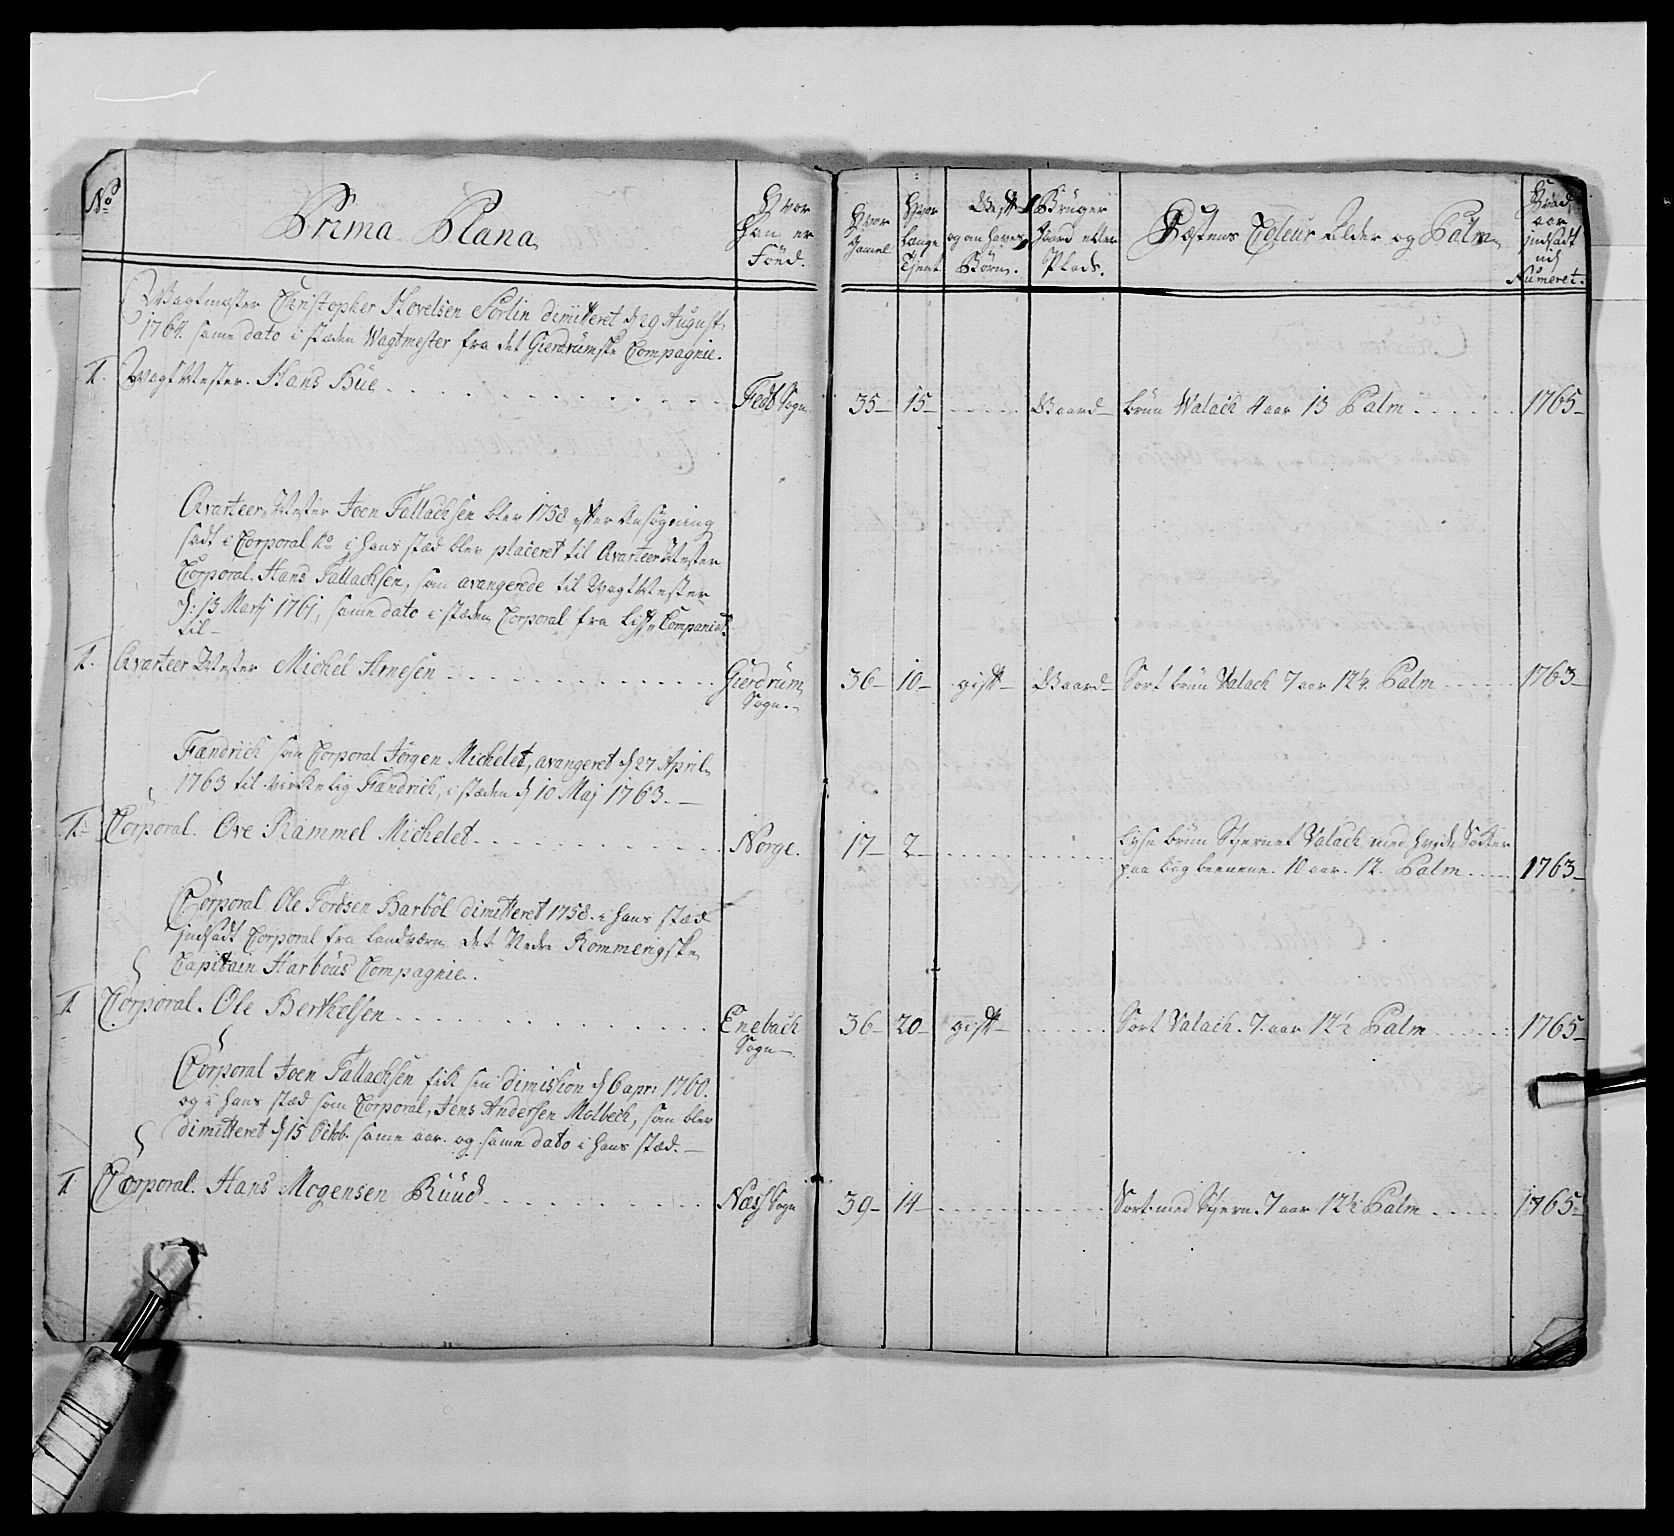 No
Prima Plana
Hvor
han er
Föed.
Hvor
Gamel
Hvor
Lenge
Tjent
Gift
og om haver
Börn.
Bruger
Gaard eller
Plads.
Hæstens Coleur Alder og Palm
Hvad
aar
indsadt
udj
Numeret.
Wagtmæster Christopher Hovelsen Sörlin dimitteret d 29 August,
1764. same dato i stæden Wagtmester fra det Gierdrumske Compagnie.
1. Wagt Mester. Hans Bue Fedt Sogn 35 15 Gaard brun Walach 4 aar 13 Palm 1765
Qvarteer Mester Joen Fallachsen blev 1758 efter Ansøgning
sadt i Corporal No i hans stæd blev placeret til Qvarteer Mester
Corporal. Hans Fallachsen, som avangerede til Wagt Mester
d: 13 Martj 1761, same dato i stæden Corporal fra Liff Companiet
til
1. Qvarteer Mester Michel Arnesen Gierdrum 36 10 gift Gaard Sort brun Valach 7 aar 12½ Palm 1763
Sogn.
Fændrich som Corporal Jörgen Michelet, avangeret d 27 April
1763 til virkelig Fændrich, i stæden d 10 Maj 1763.
1. Corporal. Ove Rammel Michelet Norge. 17 2 Lyse brun Stiernet Valach med hvide Sokker
paa bag beenene. 10 aar. 12. Palm 1763
Corporal Ole Tordsen Barböl dimitteret 1758. i hans stæd
indsadt Corporal fra Landværn det Nedre Rommerigske
Capitain Harbous Compagnie.
1 Corporal. Ole Berthelsen Enebach 36 20 gift Sort Valach. 7. aar 12½ Palm 1765
Sogn
Corporal Joen Fallachsen fik sin dimission d 6 apr: 1760.
og i hans stæd som Corporal, Jens Andersen Molbech, som blev
dimitteret d 15 Octb. same aar. og same dato i hans stæd.
1 Corporal. Hans Mogensen Ruud Næss Sogn 39 14 Sort med Stiern. 7 aar 12½ Palm 1765